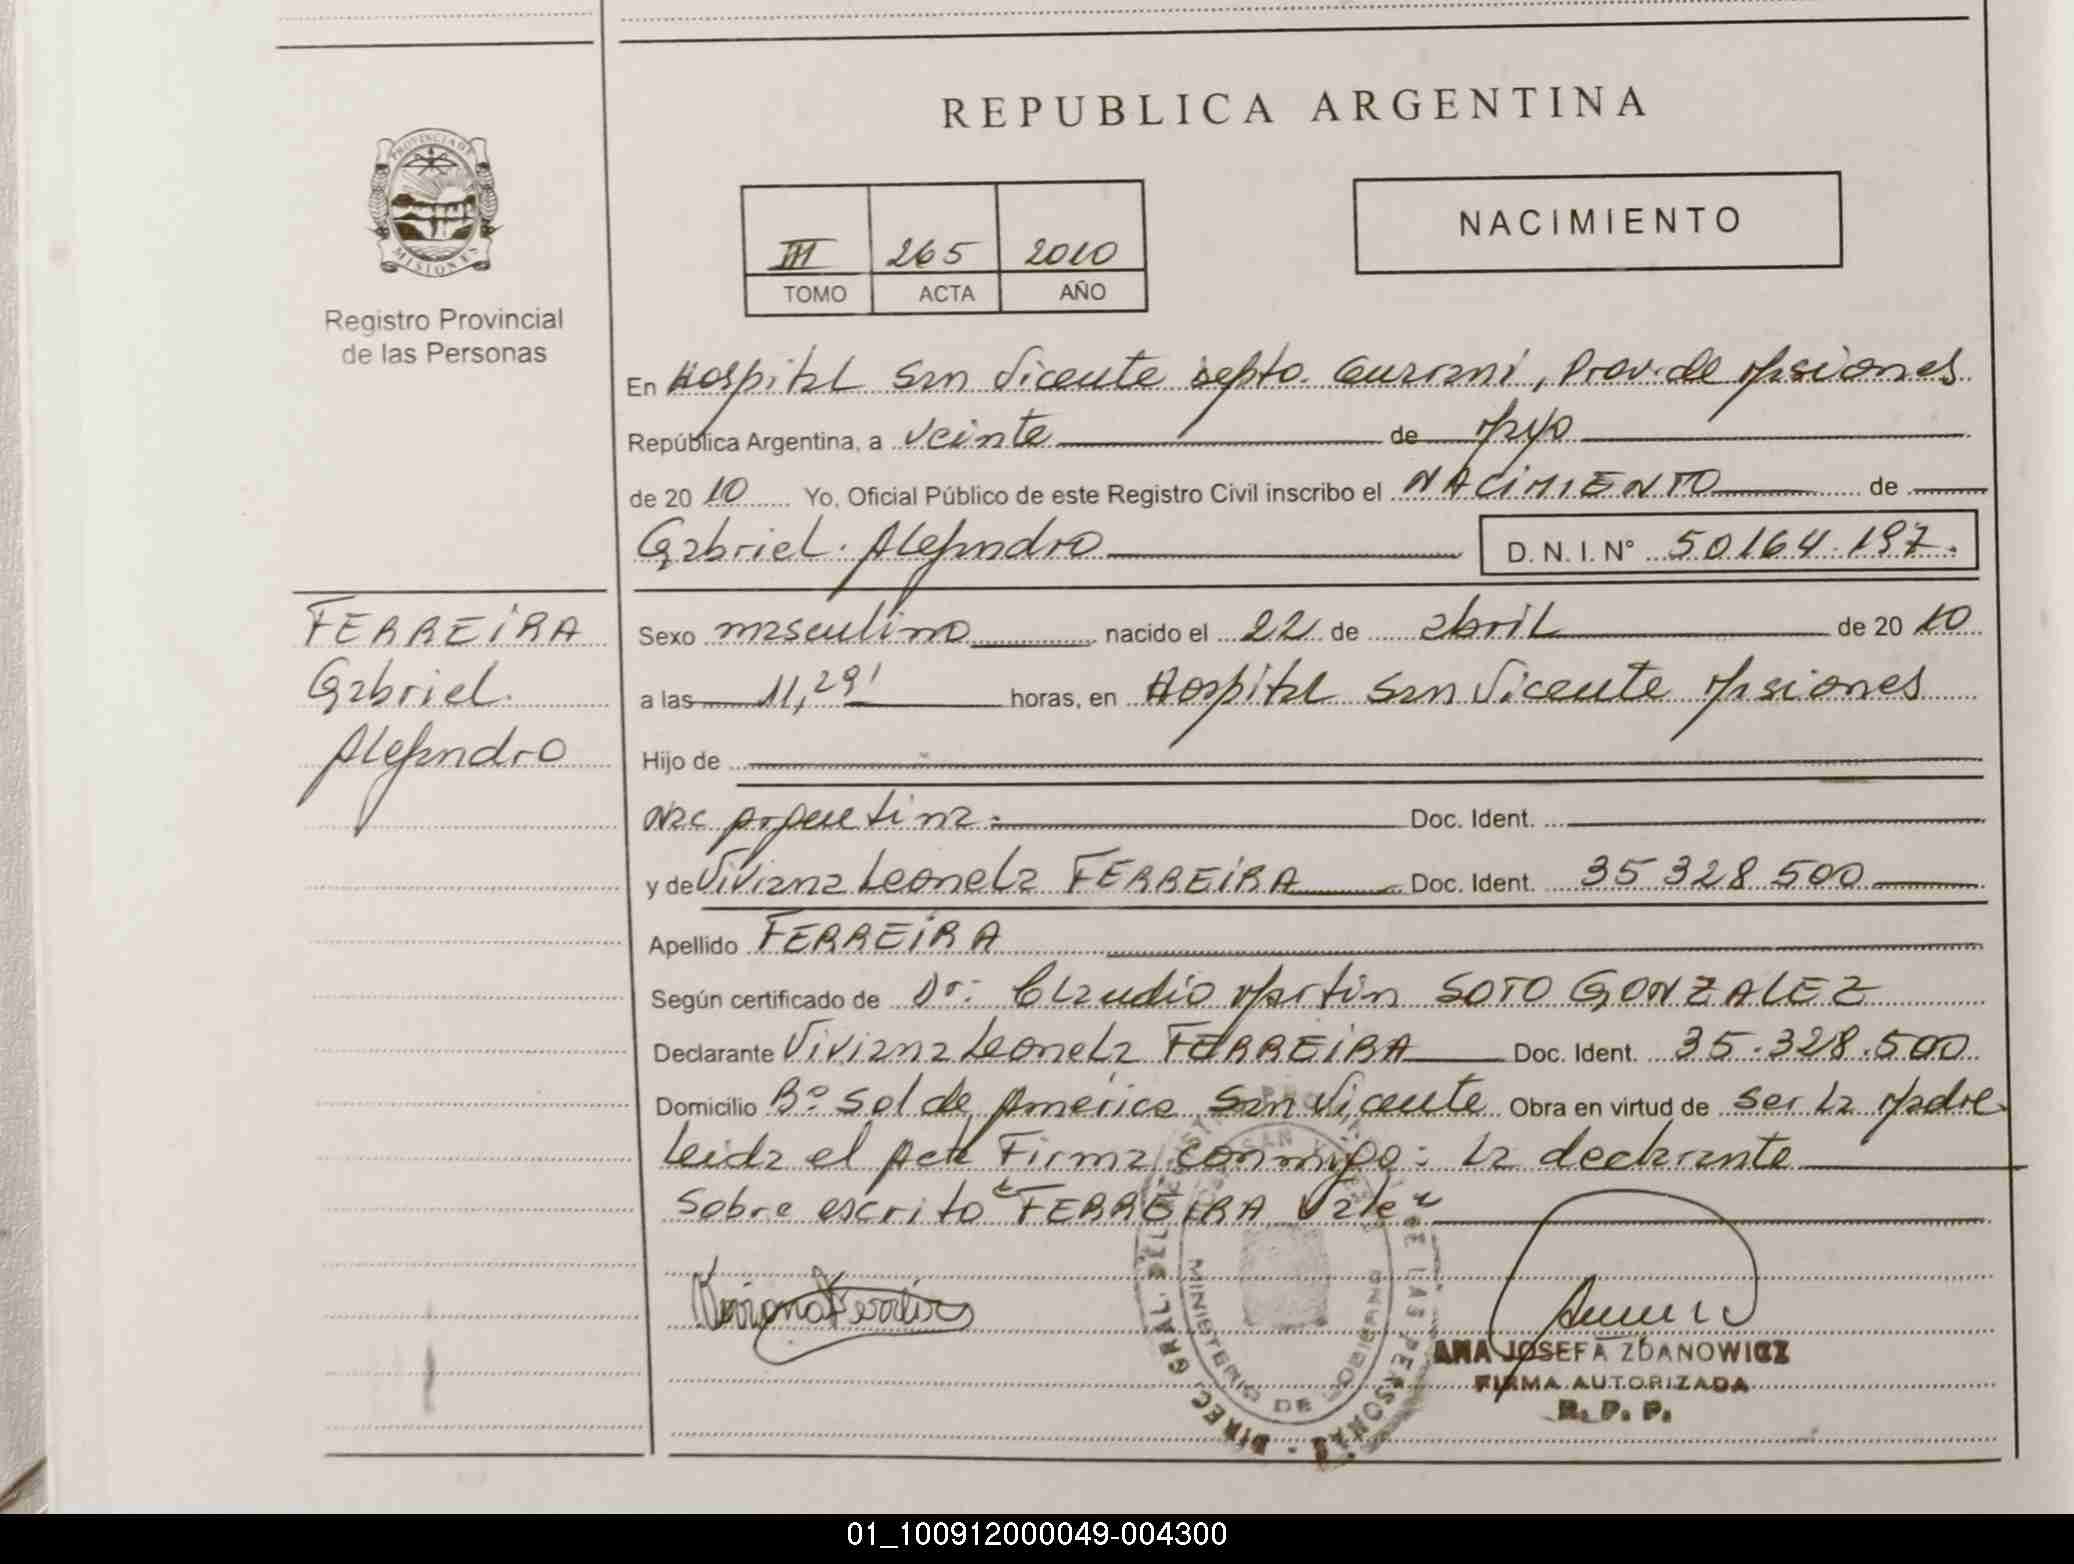 REPUBLICA ARGENTINA
PROVINCIA DE MISIONES
Registro Provincial
de las Personas
III 265 2010
TOMO ACTA AÑO
NACIMIENTO
En Hospital San Vicente Depto. Guarani, Prov. de Misiones
República Argentina, a veinte de Mayo
de 2010 Yo, Oficial Público de este Registro Civil inscribo el NACIMIENTO de
Gabriel. Alejandro D. N. I. N° 50164.197.
FERREIRA
Gabriel.
Alejandro
Sexo masculino nacido el 22 de abril de 2010
a las 11,29' horas, en Hospital San Vicente Misiones
Hijo de
Nac Argentina. Doc. Ident.
y de Viviana Leonela FERREIRA Doc. Ident. 35 328 500
Apellido FERREIRA
Según certificado de Dr: Claudio Martin SOTO GONZALEZ
Declarante Viviana Leonela FERREIRA Doc. Ident. 35.328.500
Domicilio B° Sol de America San Vicente Obra en virtud de ser la Madre
Leida el Acta Firma conmigo: la declarante
Sobre escrito "FERREIRA Vale"
Viviana Ferreira
DIREC. GRAL. DEL DE LAS PERSONAS
MINISTERIO DE GOBIERNO
ANA JOSEFA ZDANOWICZ
FIRMA AUTORIZADA
R. P. P.
01_100912000049-004300